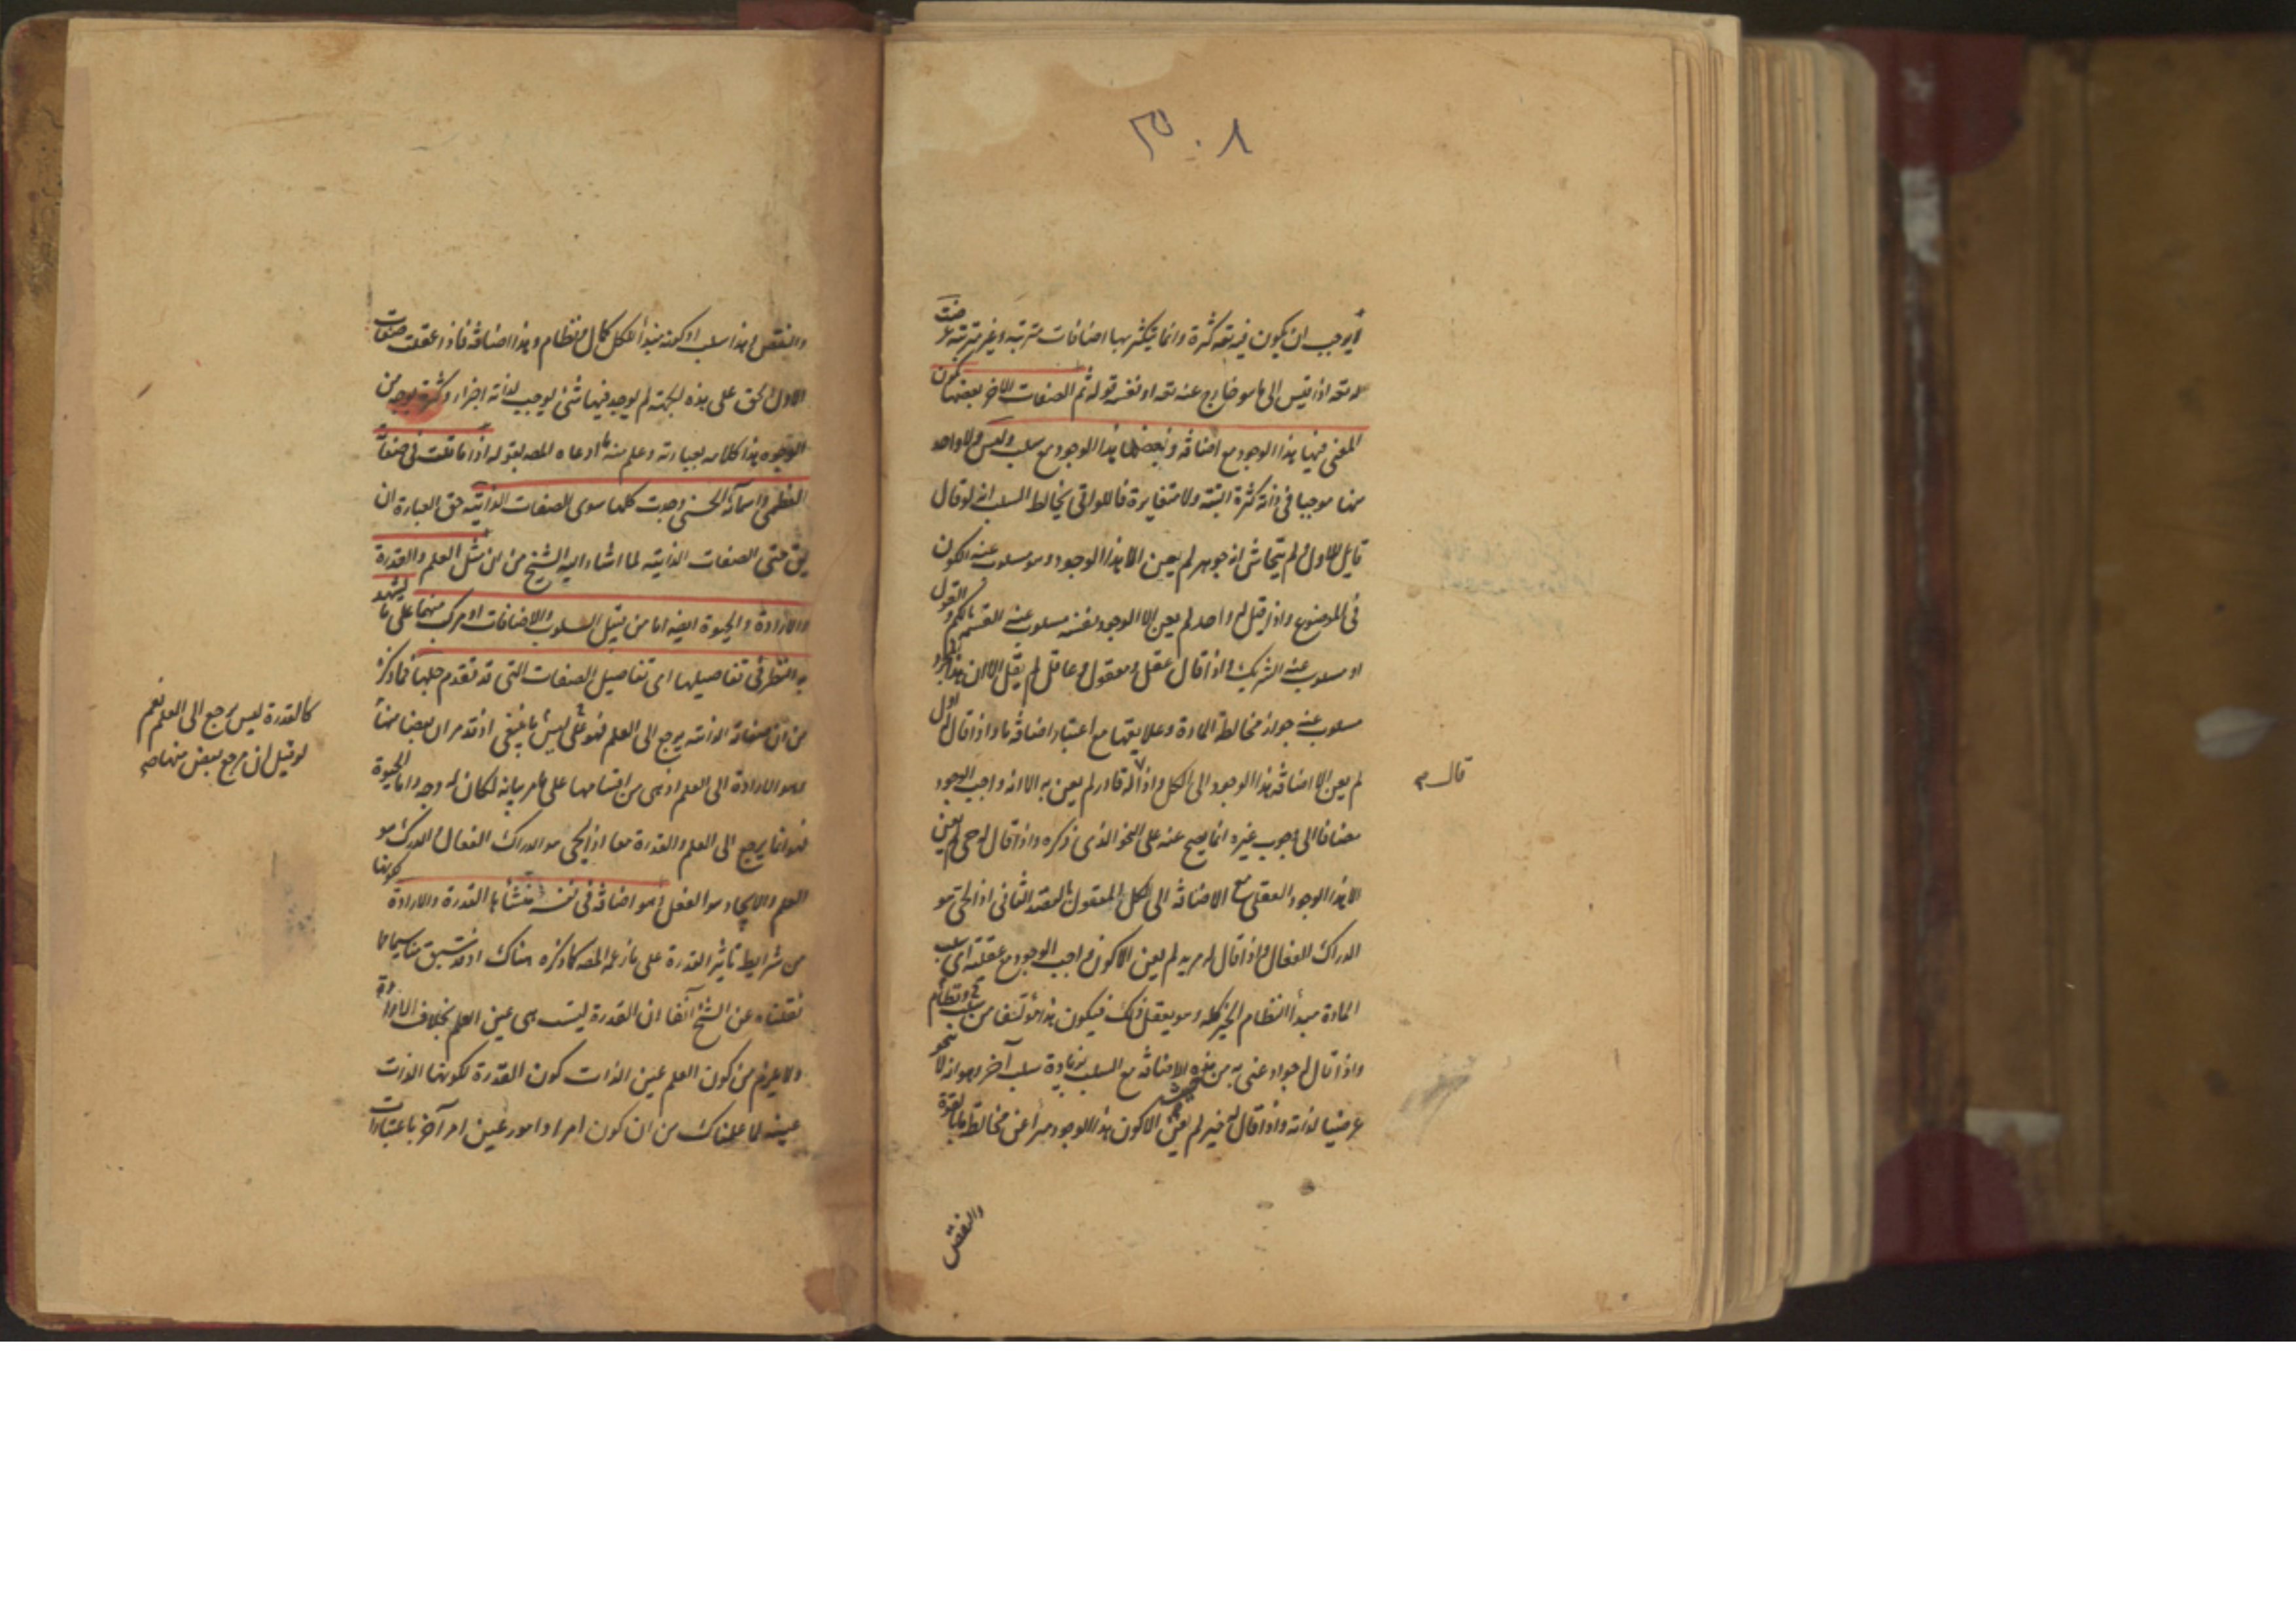 لا يوجب ان يكون فيه تعه كثرة وانما يتكثر بها اضافات مترتبة وغير مترتبة عرضت
له تعه اذا قيس الى ما هو خارج عنه تعه او نفسه قوله ثم الصفات الاخر بعضها يكون
المعنى فيها هذا الوجود مع اضافة وبعضها هذا الوجود مع سلب وليس ولا واحد
منها موجبا في ذاته كثرة البتة ولا متغايرة فاللواتي يخالط السلب انه لو قال
قايل للاول ولم يتحاش انه جوهر لم يعن الا هذا الوجود وهو مسلوب عنه الكون
في الموضوع واذا قيل له واحد لم يعن الا الوجود نفسه مسلوب عنه القسمة بالكم والقول
او مسلوب عنه الشريك واذا قال عقل ومعقول وعاقل لم يقل الا ان هذا المجرد
مسلوب عنه جواز مخالطة المادة وعلايقها مع اعتبار اضافة ما واذا قال له اول
لم يعن الا اضافة هذا الوجود الى الكل واذا له قادر لم يعن به الا انه واجب الوجود
قال صح
مضافا الى وجوب غيره انما يصح عنه على النحو الذي ذكره واذا قال له حي لم يعن
الا هذا الوجود العقلي مع الاضافة الى الكل المعقول بالقصد الثاني اذ الحي هو
الدراك الفعال واذا قال له مريد لم يعن الا كون واجب الوجود مع عقليته اي سلب
المادة مبدأ النظام الخير كله وهو يعقل ذلك فيكون هذا مؤتلفا من
واذا قال له جواد عنى به من هذه الاضافة مع السلب بزيادة سلب آخر وهو انه لا ينحو
غرضا لذاته واذا قال له خير لم يعن الا كون هذا الوجود مبرأ عن مخالطة ما بالقوة
والنقص
والنقص وهذا سلب او كونه مبدأ لكل كمال ونظام وهذا اضافة فاذا عقلت صفات
الاول الحق على هذه الجهة لم يوجد فيها شئ يوجب لذاته اجزاء وكثرة بوجه من
الوجوه هذا كلامه بعبارته وعلم منه ما ادعاه المصه بقوله اذا تاملت في صفاته
العظمى واسمائه الحسنى وجدت كلها سوى الصفات الذاتية حق العبارة ان
يق حتى الصفات الذاتية لما اشار اليه الشيخ من ان مثل العلم والقدرة
والارادة والحيوة ايضه اما من قبيل السلوب والاضافات او مركب منهما على ما يشهد
به النظر في تفاصيلها اى تفاصيل الصفات التى قد تقدم جلها فما ذكره
من ان صفاته الذاتية يرجع الى العلم فهو على ليس ما ينبغي اذ قد مر ان بعضا منها
كالقدرة ليس يرجع الى العلم نعم
لو قيل ان مرجع بعض منها صح
وهو الارادة الى العلم اذ هى من اقسامها على ما مر بيانه لكان له وجه واما الحيوة
فهو انما يرجع الى العلم والقدرة معا اذ الحى هو الدراك الفعال والدرك هو
العلم والايجاد هو الفعل وهو اضافة في نفسه منشأها القدرة والارادة كونها
من شرايط تاثير القدرة على ما زعمه المصه كما ذكره هناك اذ قد سبق منا سيما ما
نقلناه عن الشيخ آنفا ان القدرة ليست هى عين العلم بخلاف الارادة
ولا يلزم من كون العلم عين الذات كون القدرة لكونها الذات
عينه لما علمناك من ان كون امر او امور عين امر آخر باعتبارات